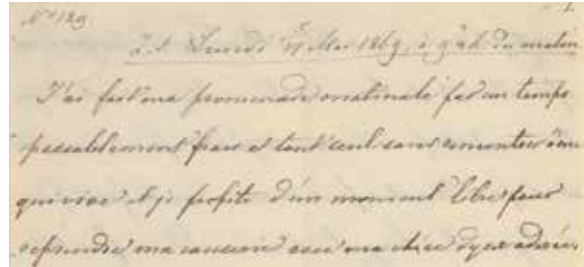 Nº 129 1.
Lundi 17 Mai 1869, à 9 ¾ h. du matin
J'ai fait ma promenade matinale par un temps
passablement frais et tout seul sans rencontrer âme
qui vive et je profite d'un moment libre pour
reprendre ma causerie avec ma chère Dyea adorée